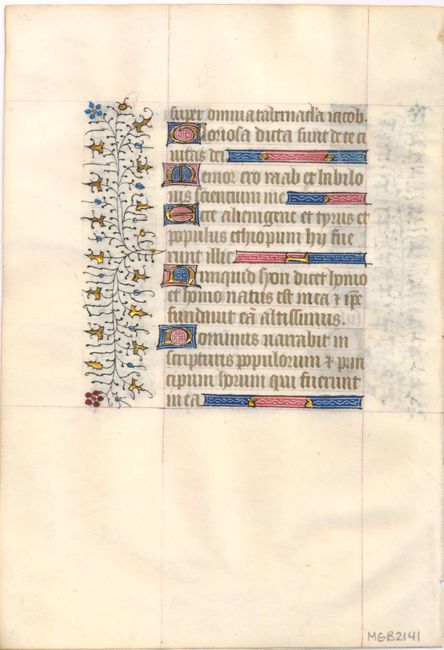 super omnia tabernacla iacob.
Gloriosa dicta sunt de te ci
uitas dei
Memor ero raab et babilo
nis scientium me
Ecce alienigene et tyrus et
populus ethiopum hii fue
runt illic
Numquid syon dicet homo
et homo natus est in ea ⁊ ipe
fundauit eā altissimus.
Dominus narrabit in
scripturis populorum ⁊ prin
cipum horum qui fuerunt
in ea
MGB2141